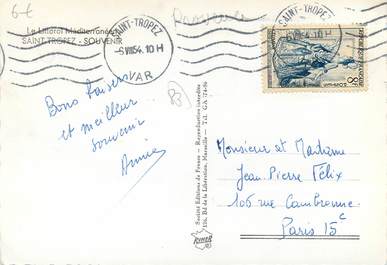 6-t
Le Littoral Méditerranéen
SAINT-TROPEZ - SOUVENIR
SAINT-TROPEZ
-6 VIII 54. 10 H
VAR
SAINT-TROPEZ
54. 10 H
8F
Bons baisers
et meilleur
souvenir
Annie
Société Editions de France - Reproduction interdite
Bd de la Libération, Marseille - Tél.
Monsieur et Madame
Jean-Pierre Félix
105 rue Cambronne
Paris 15e